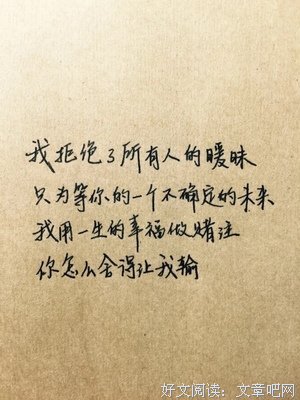 我拒绝了所有人的暧昧
只为等你的一个不确定的未来
我用一生的幸福做赌注
你怎么舍得让我输
好文阅读：文章吧网